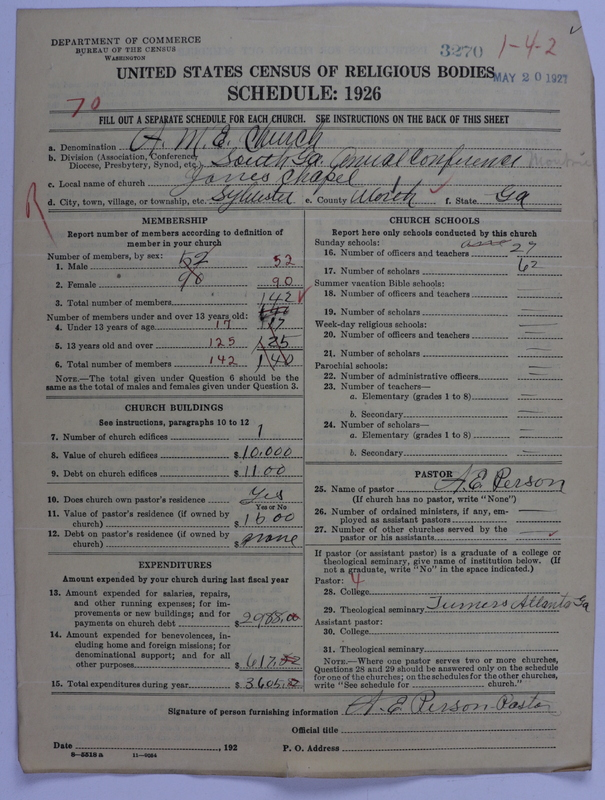 DEPARTMENT OF COMMERCE
BUREAU OF THE CENSUS
WASHINGTON
3270
1-4-2
UNITED STATES CENSUS OF RELIGIOUS BODIES
MAY 20 1927
SCHEDULE: 1926
70
FILL OUT A SEPARATE SCHEDULE FOR EACH CHURCH. SEE INSTRUCTIONS ON THE BACK OF THIS SHEET
a. Denomination A. M. E. Church
b. Division (Association, Conference, Diocese, Presbytery, Synod, etc.) South Ga. Annual Conference
c. Local name of church Jones Chapel
R
d. City, town, village, or township, etc. Sylvester e. County Worth f. State Ga
MEMBERSHIP
Report number of members according to definition of member in your church
Number of members, by sex:
1. Male 52 52
2. Female 90 90
3. Total number of members 142
Number of members under and over 13 years old:
4. Under 13 years of age 17 17
5. 13 years old and over 125 125
6. Total number of members 142 140
NOTE.—The total given under Question 6 should be the same as the total of males and females given under Question 3.
CHURCH BUILDINGS
See instructions, paragraphs 10 to 12
7. Number of church edifices 1
8. Value of church edifices $10,000
9. Debt on church edifices $1100
10. Does church own pastor's residence Yes
Yes or No
11. Value of pastor's residence (if owned by church) $1600
12. Debt on pastor's residence (if owned by church) $none
EXPENDITURES
Amount expended by your church during last fiscal year
13. Amount expended for salaries, repairs, and other running expenses; for improvements or new buildings; and for payments on church debt $2988.00
14. Amount expended for benevolences, including home and foreign missions; for denominational support; and for all other purposes $617.
15. Total expenditures during year $3605.
CHURCH SCHOOLS
Report here only schools conducted by this church
Sunday schools:
16. Number of officers and teachers 27
17. Number of scholars 62
Summer vacation Bible schools:
18. Number of officers and teachers
19. Number of scholars
Week-day religious schools:
20. Number of officers and teachers
21. Number of scholars
Parochial schools:
22. Number of administrative officers
23. Number of teachers—
a. Elementary (grades 1 to 8)
b. Secondary
24. Number of scholars—
a. Elementary (grades 1 to 8)
b. Secondary
PASTOR
25. Name of pastor A. E. Person
(If church has no pastor, write "None")
26. Number of ordained ministers, if any, employed as assistant pastors
27. Number of other churches served by the pastor or his assistants
If pastor (or assistant pastor) is a graduate of a college or theological seminary, give name of institution below. (If not a graduate, write "No" in the space indicated.)
Pastor: 4
28. College
29. Theological seminary Turners Atlanta Ga
Assistant pastor:
30. College
31. Theological seminary
NOTE.—Where one pastor serves two or more churches, Questions 28 and 29 should be answered only on the schedule for one of the churches; on the schedules for the other churches, write "See schedule for church."
Signature of person furnishing information A. E. Person Pastor
Official title
Date , 192 P. O. Address
8—5518 a 11—9024